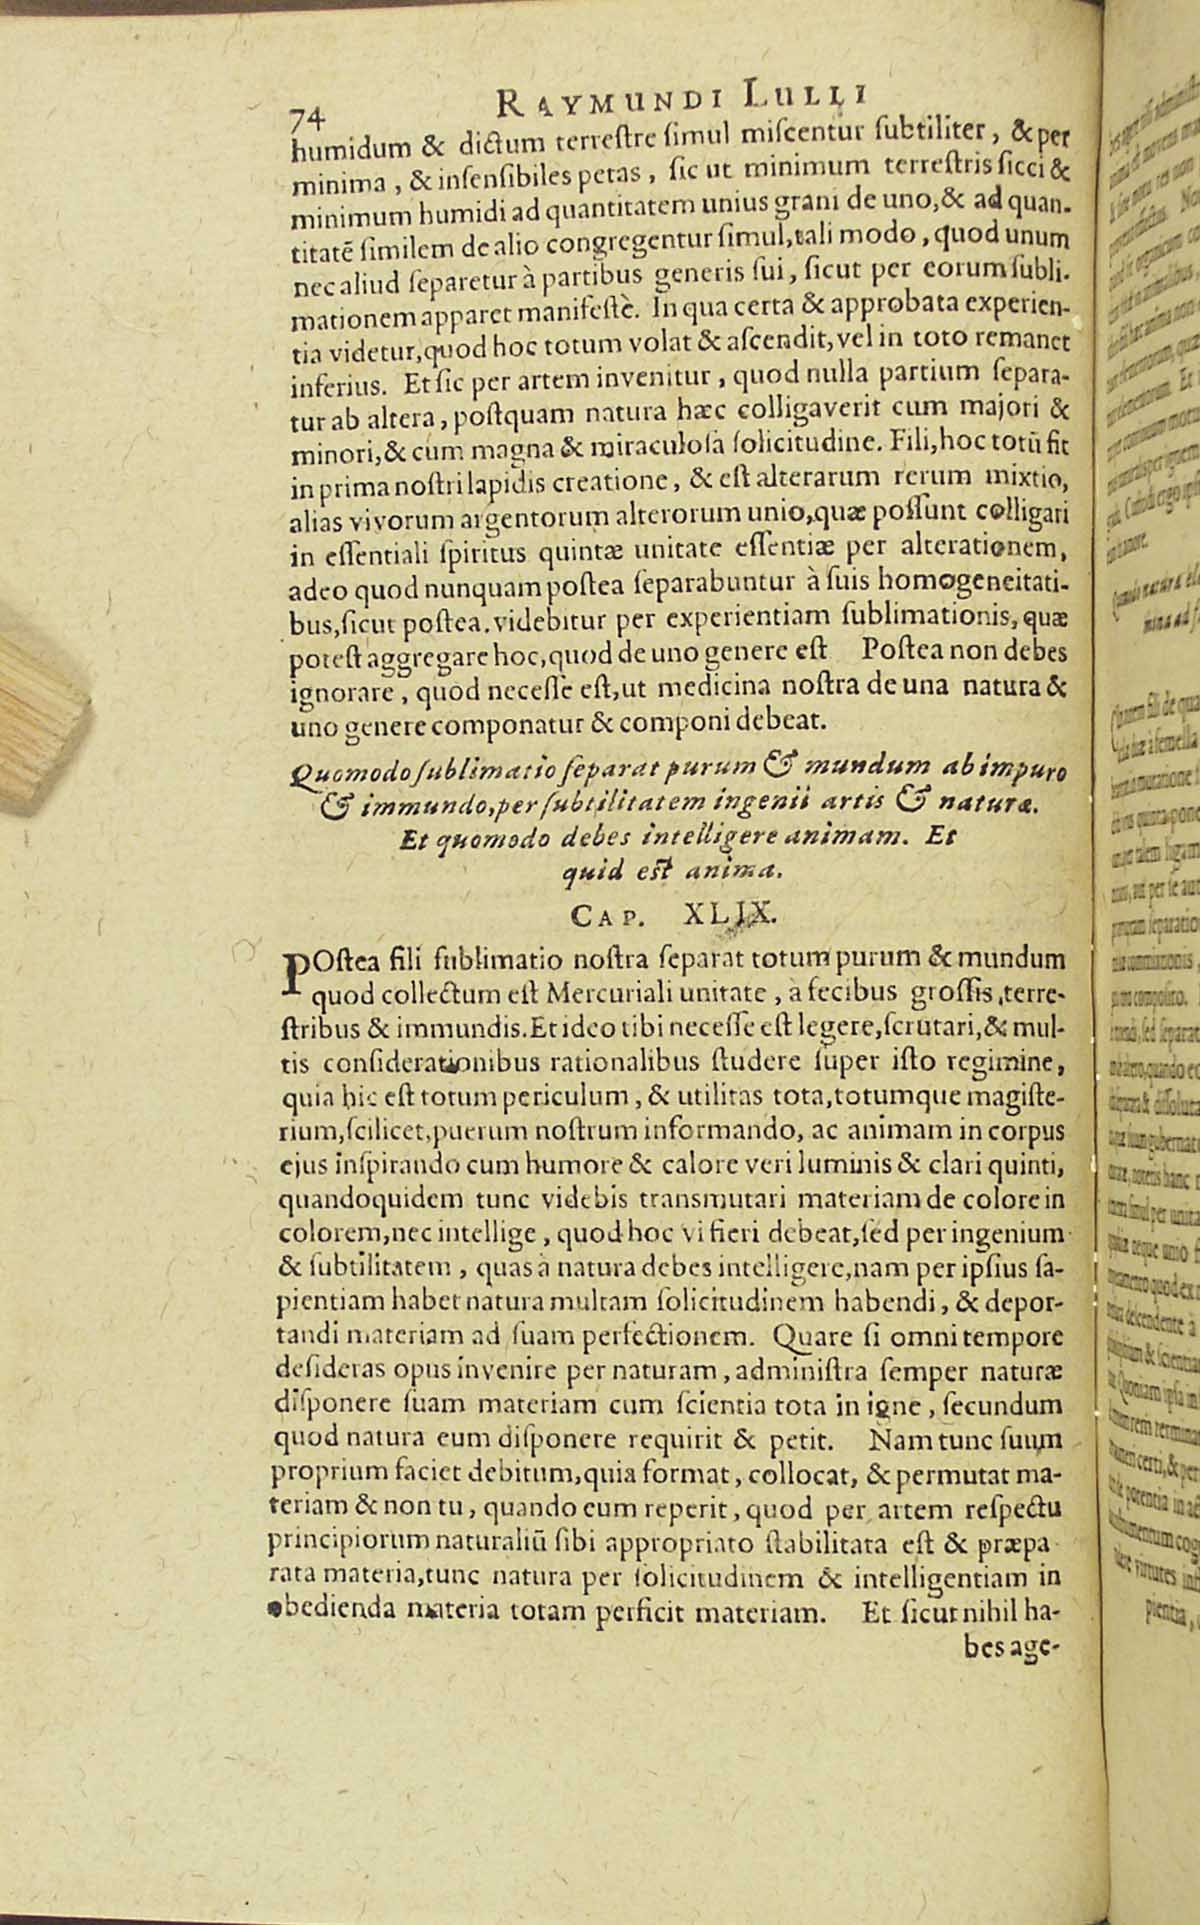 74 RAYMUNDI LULLI
humidum & dictum terreſtre ſimul miſcentur ſubtiliter, & per
minima, & inſenſibiles petas, ſic ut minimum terreſtris ſicci &
minimum humidi ad quantitatem unius grani de uno, & ad quan-
titatē ſimilem de alio congregentur ſimul, tali modo, quod unum
nec aliud ſeparetur à partibus generis ſui, ſicut per eorum ſubli-
mationem apparet manifeſtè. In qua certa & approbata experien-
tia videtur, quod hoc totum volat & aſcendit, vel in toto remanet
inferius. Et ſic per artem invenitur, quod nulla partium ſepara-
tur ab altera, poſtquam natura hæc colligaverit cum majori &
minori, & cum magna & miraculoſa ſolicitudine. Fili, hoc totū fit
in prima noſtri lapidis creatione, & eſt alterarum rerum mixtio,
alias vivorum argentorum alterorum unio, quæ poſſunt colligari
in eſſentiali ſpiritus quintæ unitate eſſentiæ per alterationem,
adeo quod nunquam poſtea ſeparabuntur à ſuis homogeneitati-
bus, ſicut poſtea. videbitur per experientiam ſublimationis, quæ
poteſt aggregare hoc, quod de uno genere eſt Poſtea non debes
ignorare, quòd neceſſe eſt, ut medicina noſtra de una natura &
uno genere componatur & componi debeat.
Quomodo ſublimatio ſeparat purum & mundum ab impuro
& immundo, per ſubtilitatem ingenii artis & naturæ.
Et quomodo debes intelligere animam. Et
quid eſt anima.
CAP. XLIX.
POſtea fili ſublimatio noſtra ſeparat totum purum & mundum
quod collectum eſt Mercuriali unitate, à fecibus groſſis, terre-
ſtribus & immundis. Et ideo tibi neceſſe eſt legere, ſcrutari, & mul-
tis conſiderationibus rationalibus ſtudere ſuper iſto regimine,
quia hic eſt totum periculum, & utilitas tota, totumque magiſte-
rium, ſcilicet, puerum noſtrum informando, ac animam in corpus
ejus inſpirando cum humore & calore veri luminis & clari quinti,
quandoquidem tunc videbis transmutari materiam de colore in
colorem, nec intellige, quod hoc vi fieri debeat, ſed per ingenium
& ſubtilitatem, quas à natura debes intelligere, nam per ipſius ſa-
pientiam habet natura multam ſolicitudinem habendi, & depor-
tandi materiam ad ſuam perfectionem. Quare ſi omni tempore
deſideras opus invenire per naturam, adminiſtra ſemper naturæ
diſponere ſuam materiam cum ſcientia tota in igne, ſecundum
quod natura eum diſponere requirit & petit. Nam tunc ſuum
proprium faciet debitum, quia format, collocat, & permutat ma-
teriam & non tu, quando eum reperit, quod per artem reſpectu
principiorum naturaliū ſibi appropriato ſtabilitata eſt & præpa
rata materia, tunc natura per ſolicitudinem & intelligentiam in
obedienda materia totam perficit materiam. Et ſicut nihil ha-
bes age-